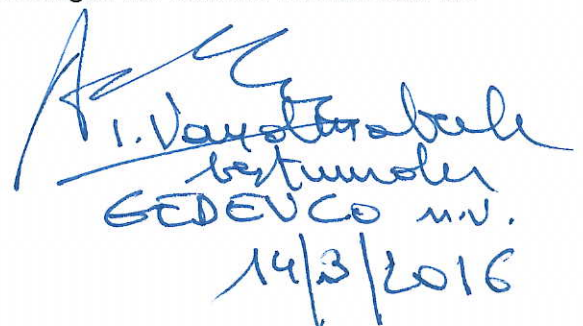 I. Vandenabeele
bestuurder
GEDEVCO n.v.
14/3/2016